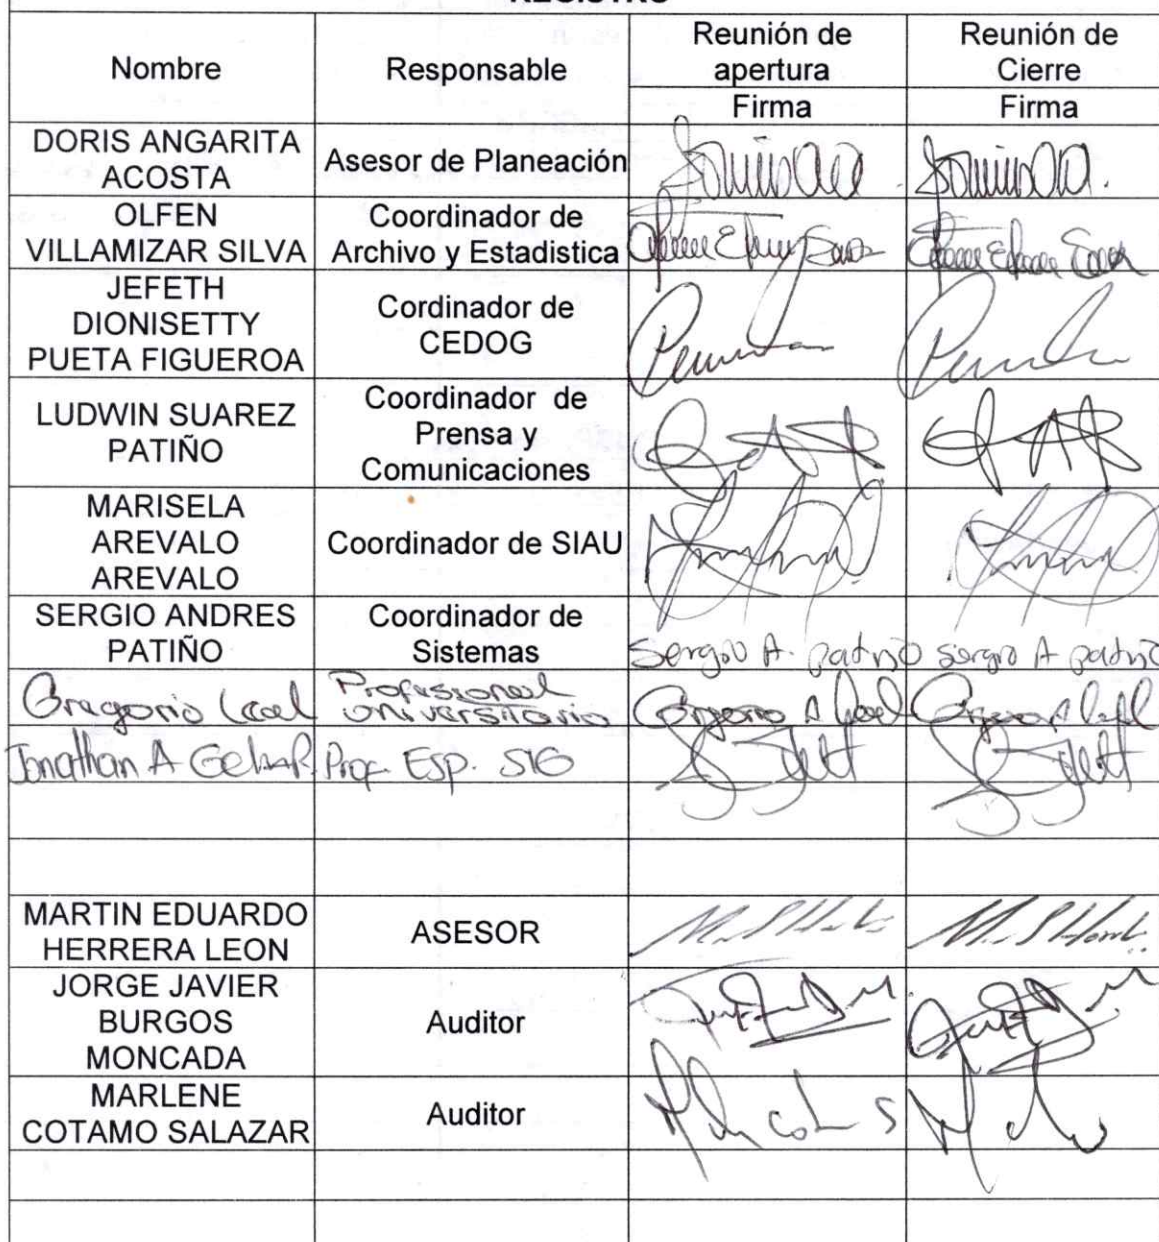 REGISTRO
Nombre
Responsable
Reunión de
apertura
Reunión de
Cierre
Firma
Firma
DORIS ANGARITA
ACOSTA
Asesor de Planeación
OLFEN
VILLAMIZAR SILVA
Coordinador de
Archivo y Estadistica
JEFETH
DIONISETTY
PUETA FIGUEROA
Cordinador de
CEDOG
LUDWIN SUAREZ
PATIÑO
Coordinador de
Prensa y
Comunicaciones
MARISELA
AREVALO
AREVALO
Coordinador de SIAU
SERGIO ANDRES
PATIÑO
Coordinador de
Sistemas
Sergio A. patiño
sergio A patiño
Gregorio Leal
Profesional
universitario
Jonathan A
Prof. Esp. SIG
MARTIN EDUARDO
HERRERA LEON
ASESOR
JORGE JAVIER
BURGOS
MONCADA
Auditor
MARLENE
COTAMO SALAZAR
Auditor